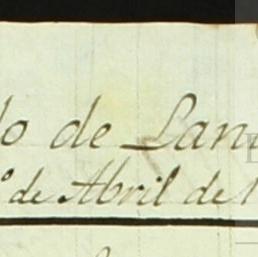 do de Lan
o de Abril de 1